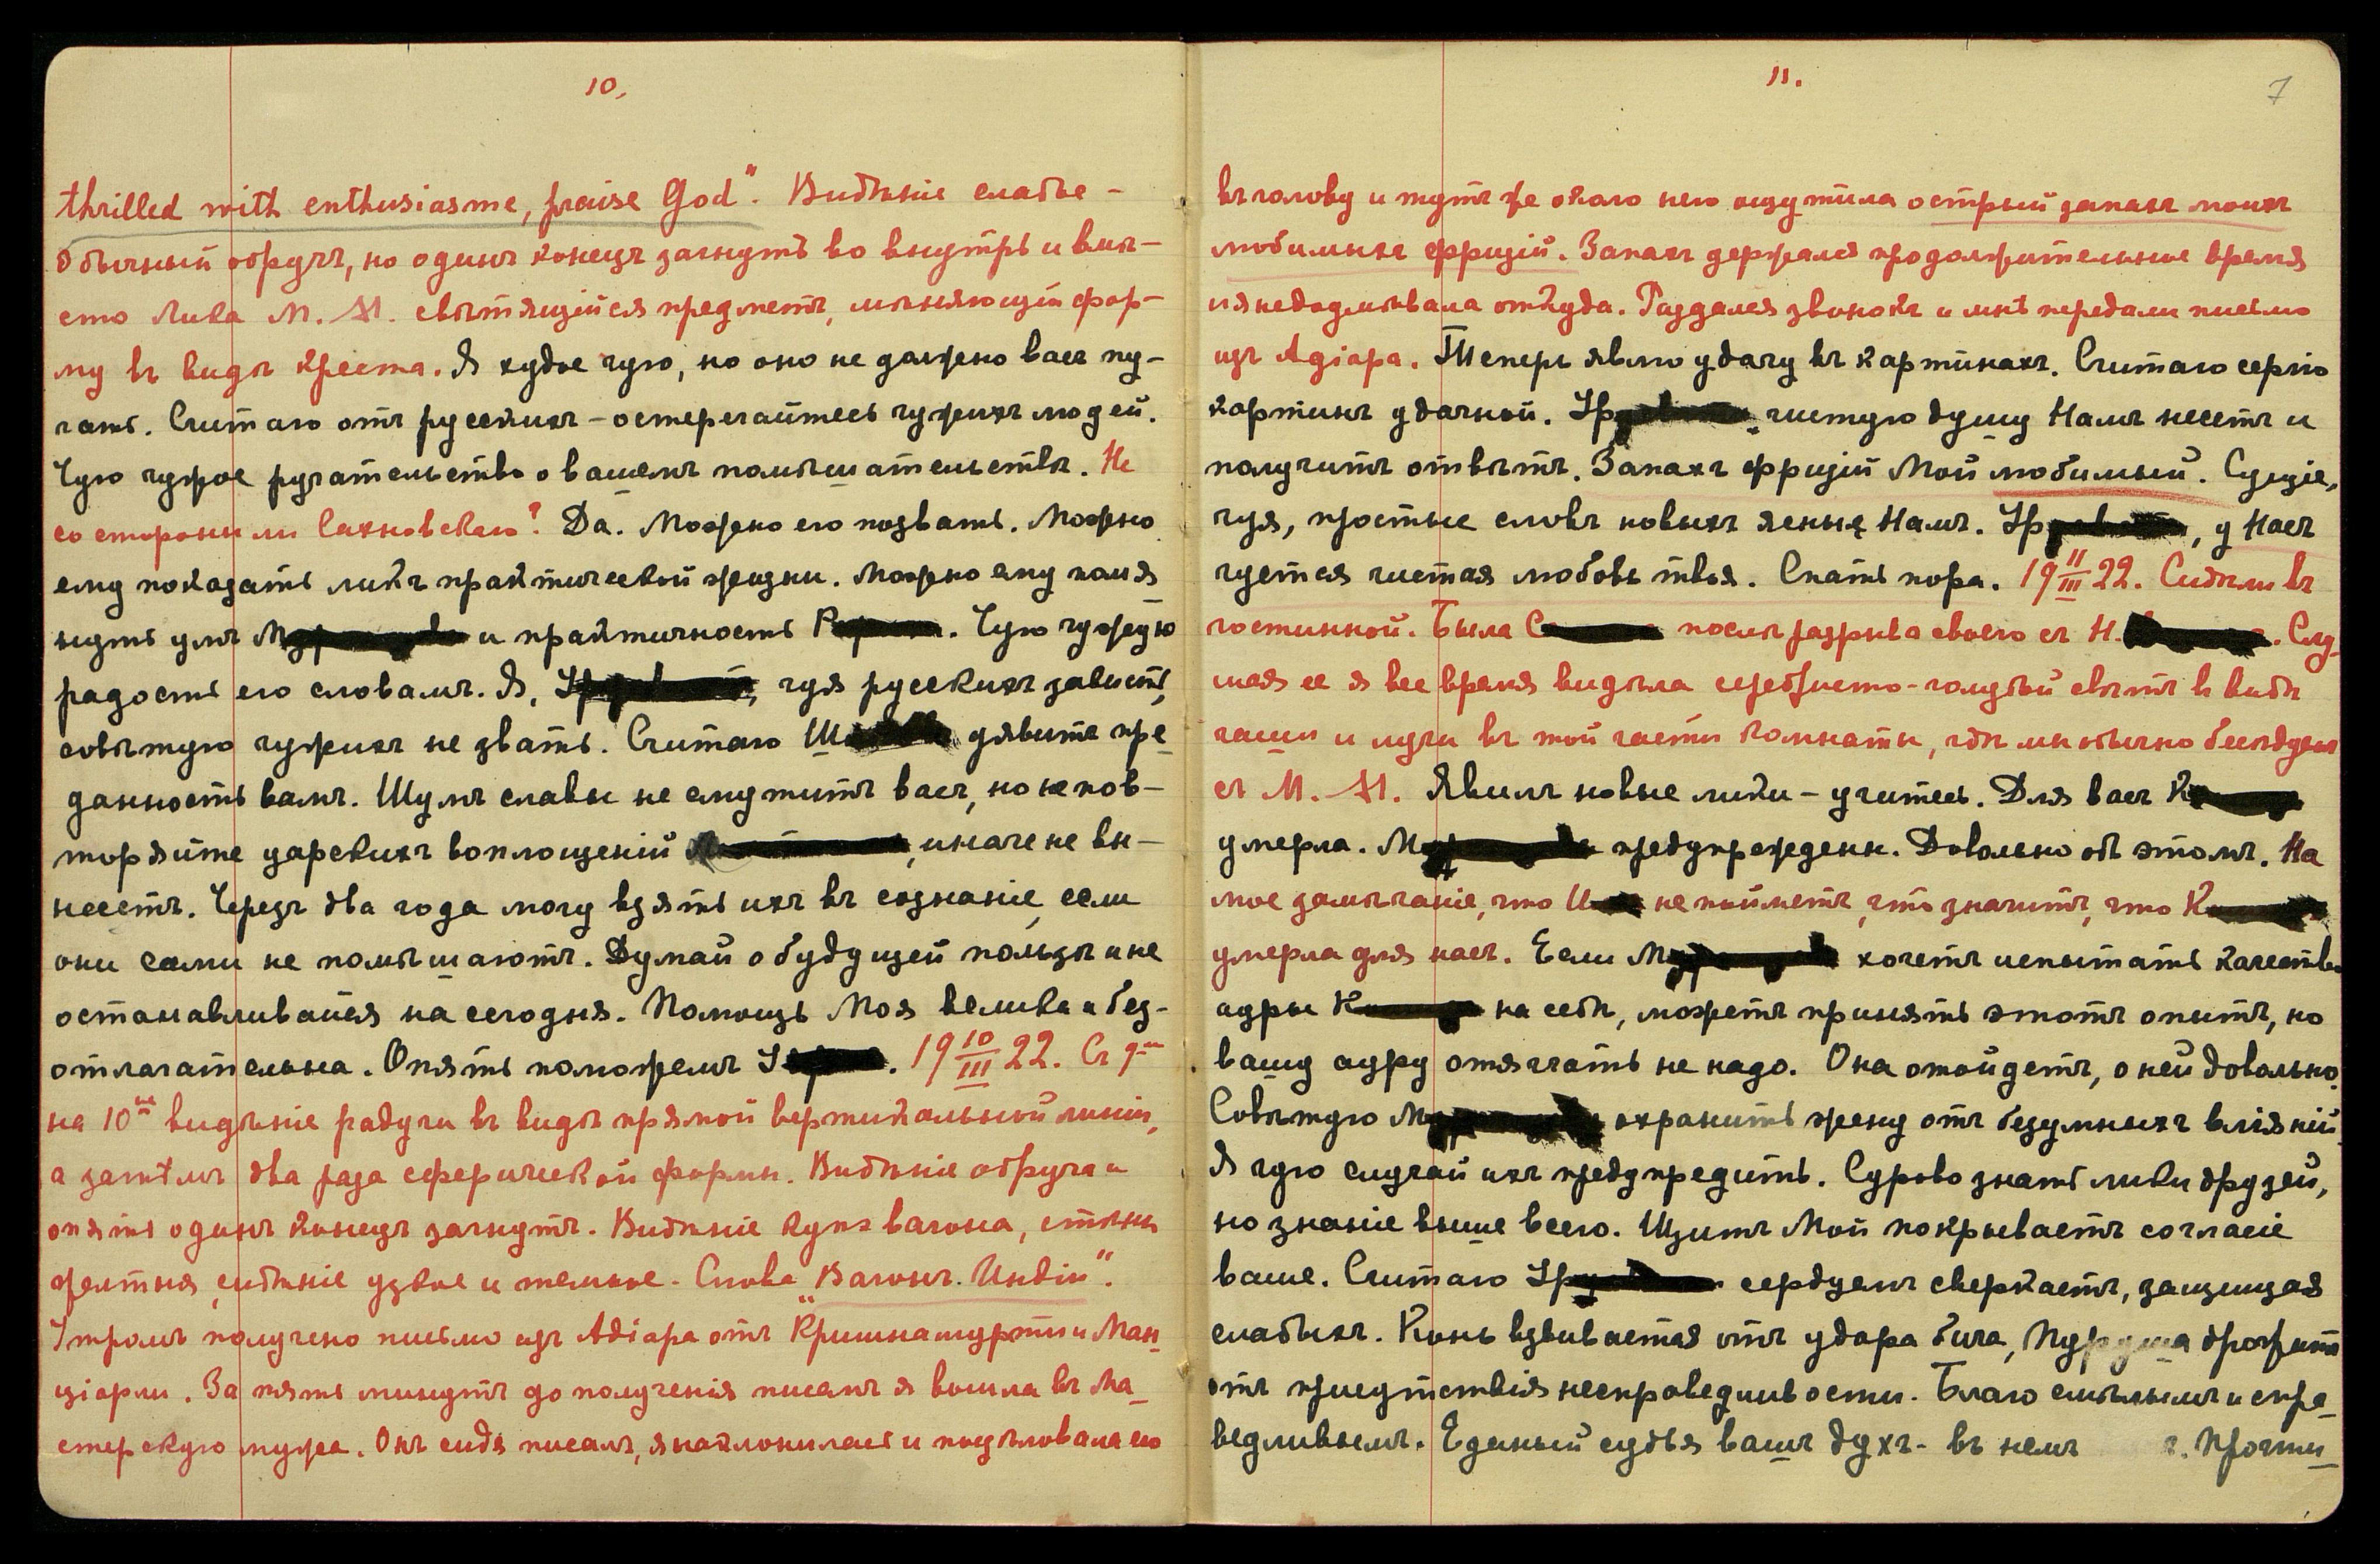 10.
thrilled with enthusiasme, praise God". Видѣніе слабѣе -
обычный обручъ, но одинъ конецъ загнутъ во внутрь и вмѣ-
сто Лика М. М. свѣтящійся предметъ, мѣняющій фор-
му въ видѣ креста. Я худое чую, но оно не должно васъ пу-
гать. Считаю отъ русскихъ - остерегайтесь чужихъ людей.
Чую чужое ругательство о вашемъ помѣшательствѣ. Не
со стороны ли Сахновскаго? Да. Можно его позвать. Можно
ему показать ликъ практической жизни. Можно ему помя
нуть умъ и практичность. Чую чужую
радость его словамъ. Я, чуя русскихъ зависть,
совѣтую чужихъ не звать. Считаю удвитъ пре
данность вамъ. Шумъ славы не смутитъ васъ, но не пов-
торяйте царскихъ воплощеній, иначе не вы-
несетъ. Черезъ два года могу взять ихъ въ сознаніе, если
они сами не помѣшаютъ. Думай о будущей пользѣ и не
останавливайся на сегодня. Помощь Моя велика и без-
отлагательна. Опять поможемъ. 19 10/III 22. Съ 9го
на 10ое видѣніе радуги въ видѣ прямой вертикальной линіи,
а затѣмъ два раза сферической формы. Видѣніе обруча и
опять одинъ конецъ загнутъ. Видѣніе купэ вагона, стѣны
желтыя, сидѣніе узкое и темное. Слова "Вагонъ. Индіи".
Утромъ получено письмо изъ Адіара отъ Кришнамурти и Ман
ціарли. За пять минутъ до полученія писемъ я вошла въ ма
стерскую мужа. Онъ сидя писалъ, я наклонилась и поцѣловала его
11.
7
въ голову и тутъ же около него ощутила острый запахъ моихъ
любимыхъ фризій. Запахъ держался продолжительное время
и я недоумѣвала откуда. Раздался звонокъ и мнѣ передали письмо
изъ Адіара. Теперь явлю удачу въ картинахъ. Считаю серію
картинъ удачной. чистую душу Намъ несетъ и
получитъ отвѣтъ. Запахъ фризій Мой любимый. Сущіе,
чуя, простые словъ новыхъ ясныѣ Намъ. , у Насъ
чуется чистая любовь твоя. Спать пора. 19 11/III 22. Сидѣли въ
гостинной. Была послѣ разрыва своего съ Н. . Слу
шая ее я все время видѣла серебристо-голубой свѣтъ въ видѣ
чаши и лучи въ той части комнаты, гдѣ мы обычно бесѣдуемъ
съ М. М. Явилъ новые лики - учитесь. Для васъ
умерла. предупреждены. Довольно объ этомъ. На
мое замѣчаніе, что не пойметъ, что значитъ, что
умерла для насъ. Если хочетъ испытать качество
ауры на себѣ, можетъ принять этотъ опытъ, но
вашу ауру отягчать не надо. Она отойдетъ, о ней довольно.
Совѣтую охранить жену отъ безумныхъ вліяній.
Я чую случай ихъ предупредить. Сурово знать лики друзей,
но знаніе выше всего. Щитъ Мой покрываетъ согласіе
ваше. Считаю сердцемъ сверкаетъ, защищая
слабыхъ. Конь взвивается отъ удара бича, Пуруша дрожитъ
отъ присутствія несправедливости. Благо смѣлымъ и спра
ведливымъ. Единый судья вашъ духъ - въ немъ . Прочти